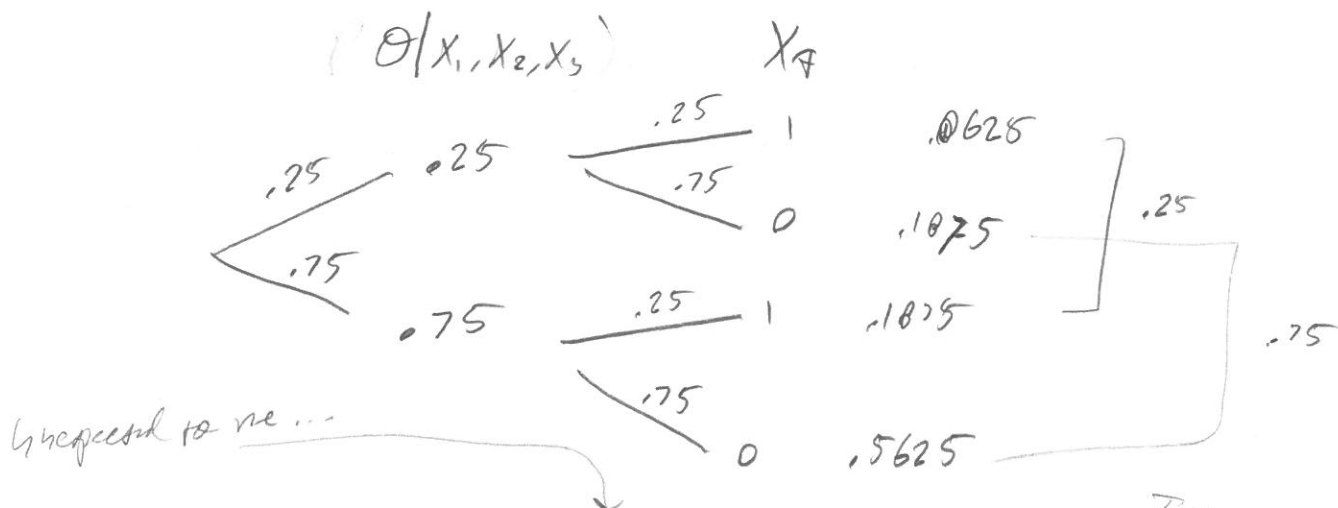 θ|X₁,X₂,X₃ X₄
.25 .25 .25 1 .0625
.75 0 .1875 .25
.75 .75 .25 1 .1875 .75
.75 0 .5625
to me ...